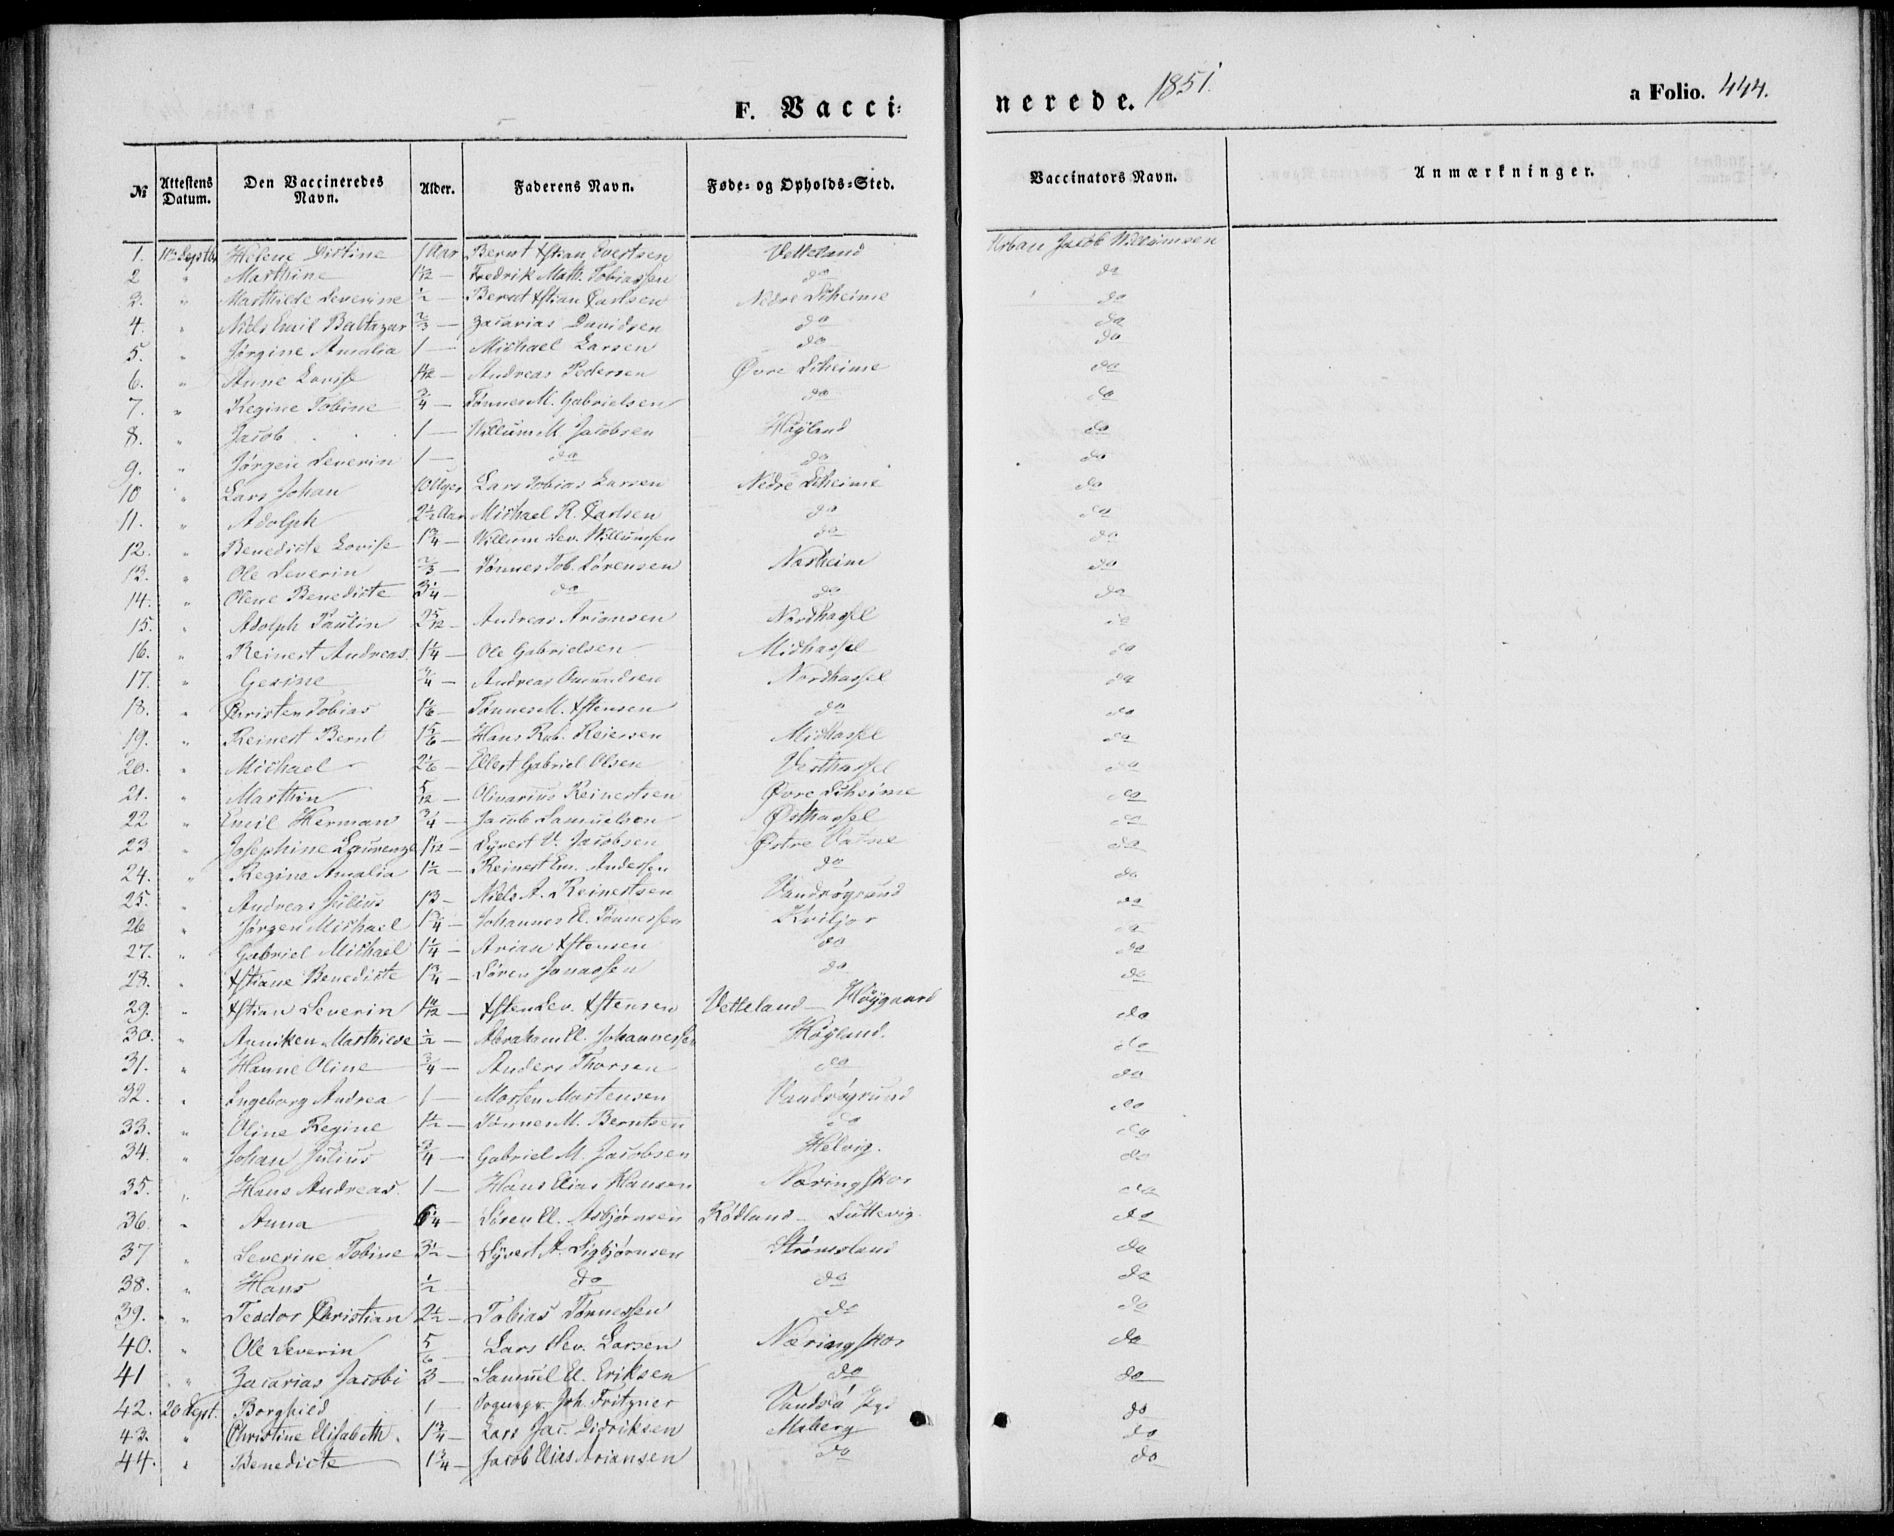 F. Vacci-
nerede. 1851.
a Folio. 444.
№ Attestens Datum. Den Vaccineredes Navn. Alder. Faderens Navn. Føde- og Opholds-Sted. Vaccinators Navn. Anmærkninger.
1. Septb. Helene Distine 1 Aar Bernt Evertsen Vetteland Urban Jacob Willumsen
2 " Marthine — Fredrik Math. Tobiassen do do
3. " Marthilde Severine ½ — Bernt Carlsen Nedre Skeime do
4. " Niels Emil Baltazar 2/3 — Zacarias Davidsen do do
5. " Jørgine Amalia 1 — Michael Larsen do do
6. " Anne Lovise — Andreas Pedersen Øvre Skeime do
7. " Regine Tobine ¾ — Tønnes M. Gabrielsen do do
8. " Jacob 1 — Willum M. Jacobsen Høyland do
9. " Jørgen Severin 1 — do do do
10 " Lars Johan 10 Uger Lars Tobias Larsen Nedre Skeime do
11. " Adolph 2½ Aar Michael R. Carlsen do do
12. " Benedicte Lovise 1¾ — Willum Sev. Willumsen do do
13. " Ole Severin 2/3 — Tønnes Tob. Sørensen Narheim do
14. " Olene Benedicte 3¼ — do do do
15. " Adolph Paulin 2 5/12 — Andreas Ariansen Nordhassel do
16. " Reinert Andreas 1¼ — Ole Gabrielsen Midhassel do
17. " Gesine ¾ — Andreas Omundsen Nordhassel do
18. " Christen Tobias 1 1/6 — Tønnes M. do do
19. " Reinert Bernt 1 5/6 — Hans Rub. Reiersen Midhassel do
20. " Michael 2 1/6 — Ellert Gabriel Olsen Vesthassel do
21. " Marthin 5/12 — Olivarius Reinertsen Øvre Skeime do
22 " Emil Herman ¾ — Jacob Samuelsen Østhassel do
23 " Josephine Laurenze — Syvert V. Jacobsen Østre Vatne do
24. " Regine Amalia 1½ — Reinert Em. Anderssen do do
25. " Andreas Julius 13 — Niels A. Reinertsen Vandsøgrund do
26 " Jørgen Michael 1¾ — Johannes El. Tønnessen Kviljor do
27. " Gabriel Michael 1¼ — Arian do do
28. " Benedicte 1¾ — Søren Jonassen do do
29. " Severin — Vetteland — Høygaard do
30. " Anniken Marthilde ½ — Abraham El. Johannessen Høyland. do
31. " Hanne Oline ¾ — Anders Thorsen do do
32. " Ingeborg Andrea 1 — Morten Martensen Vandsøgrund do
33. " Oline Regine 1½ — Tønnes M. Berntsen do do
34. " Johan Julius ¾ — Gabriel M. Jacobsen Helvig. do
35. " Hans Andreas 1 — Hans Elias Hansen Næringskor do
36. " Anna — Søren El. Asbjørnsen Rødland — Luttevig. do
37 " Severine Tobine 3½ — Syvert A. Sigbjørnsen Strømsland do
38. " Hans ½ do do do
39. " Teodor Christian 2½ — Tobias Tønnessen do do
40. " Ole Severin 5/6 — Lars Sev. Larsen Næringskor do
41 " Zacarias Jacobi 3 — Samuel El. Eriksen do do
42. 20 Sept. Borghild 1 — Joh. Fritzner do
43. " Christine Elisabeth. 1¾ — Lars Jac. Didriksen Maberg do
44. " Benedicte 1¾ — Jacob Elias Ariansen do do